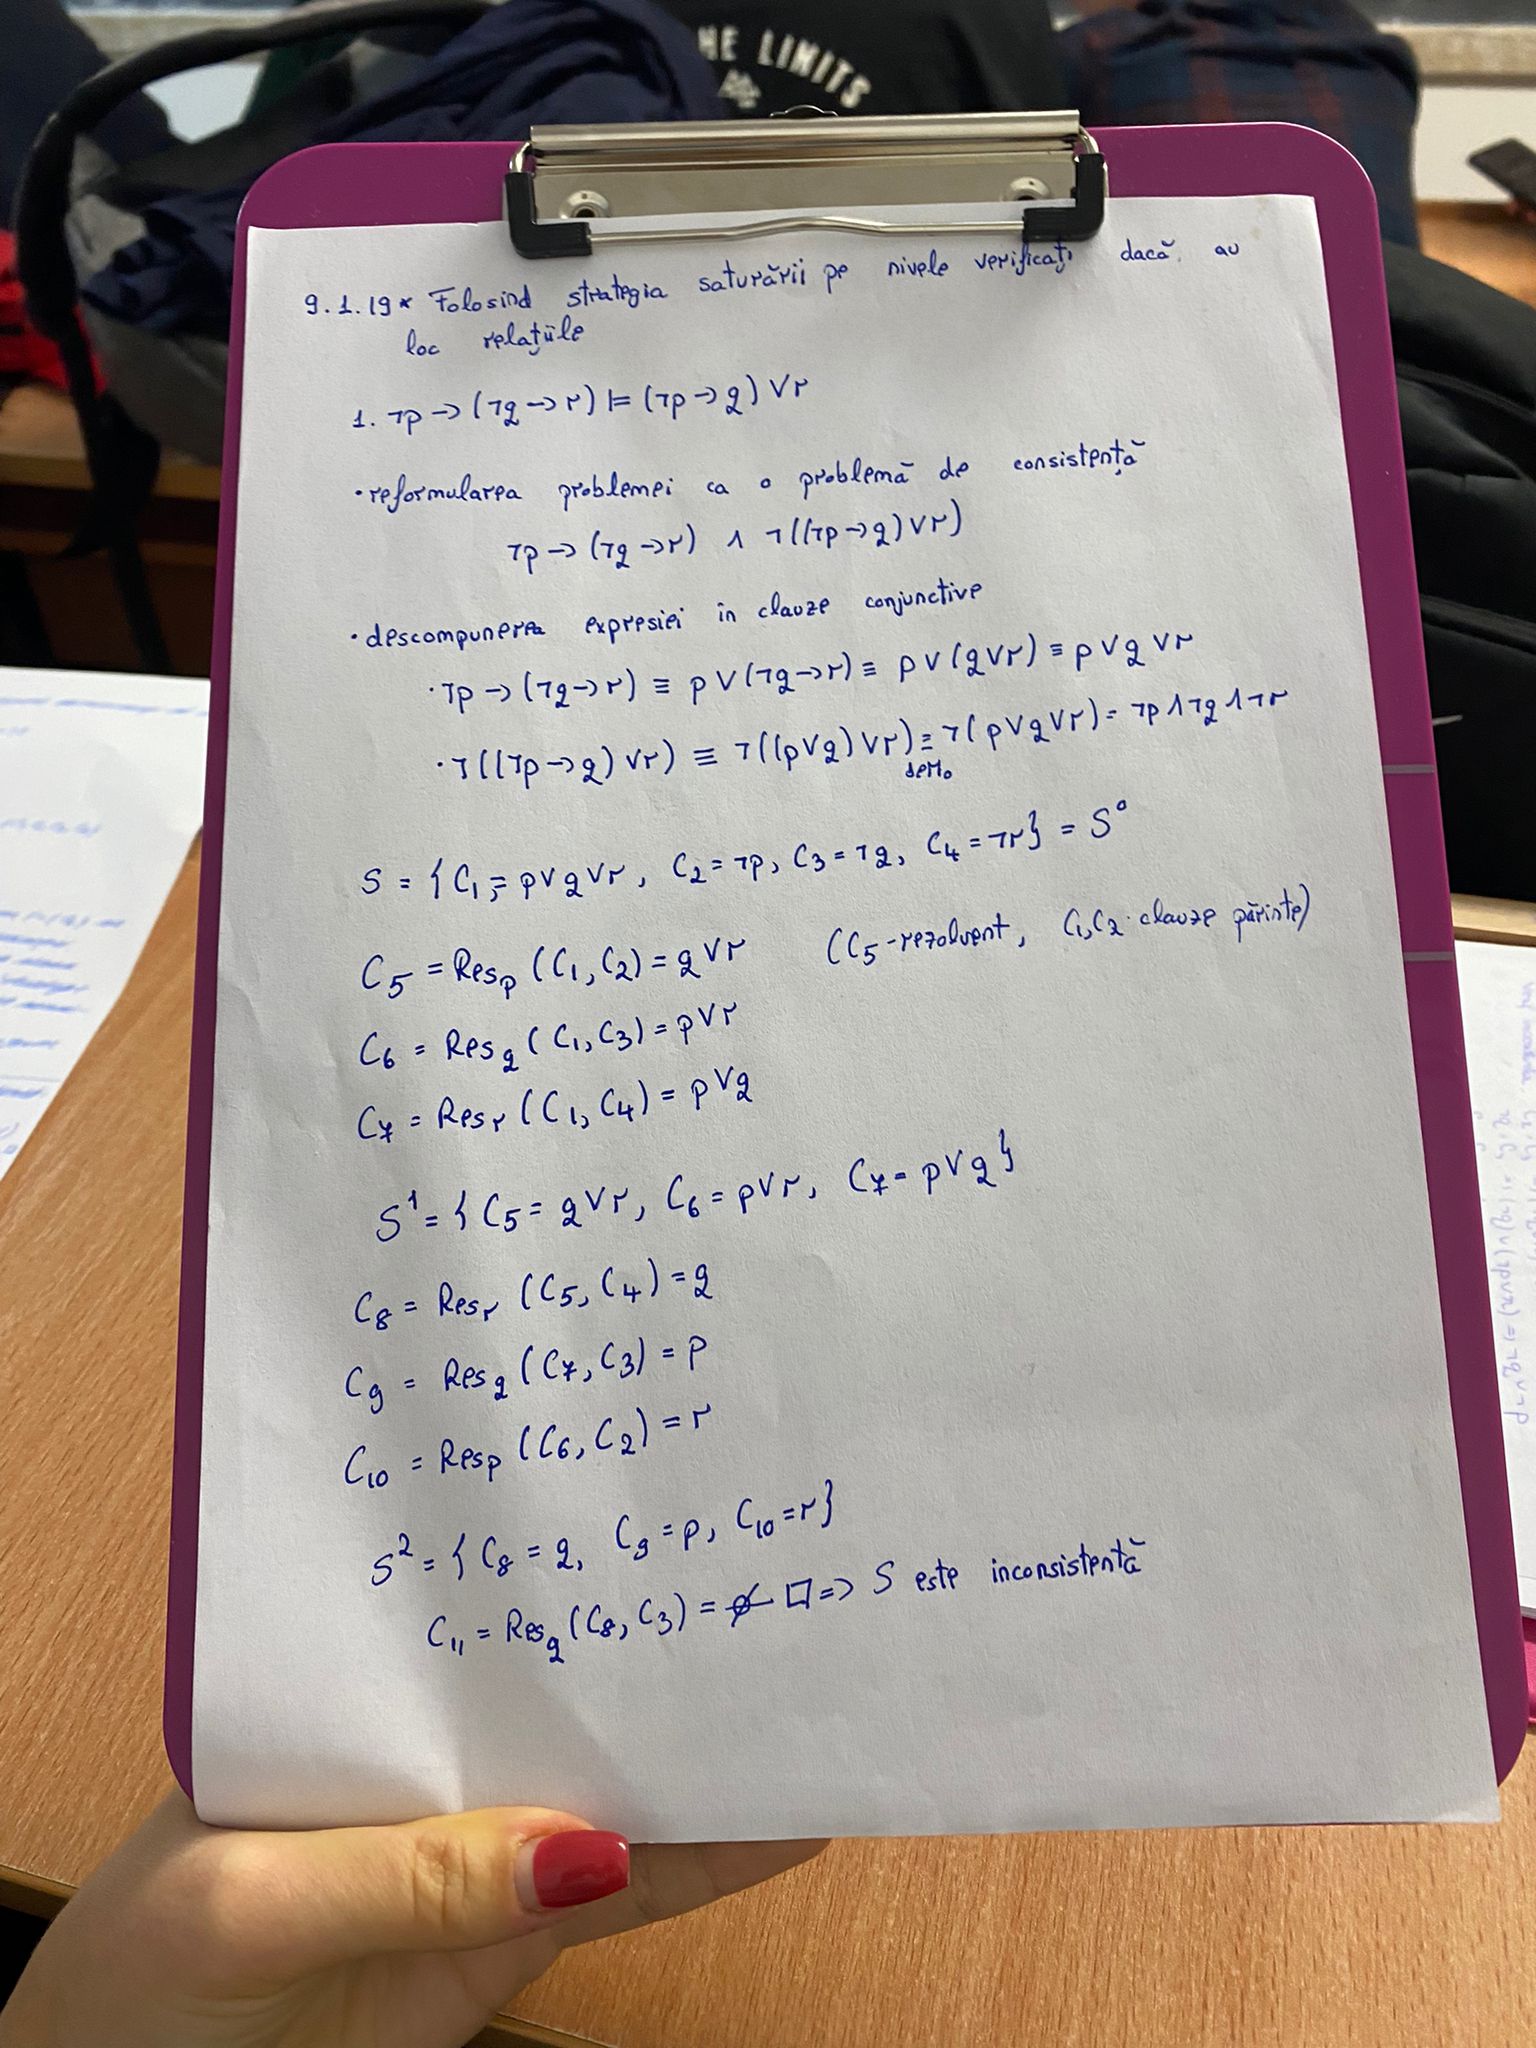 HE LIMITS
9.1.19* Folosind strategia saturării pe nivele verificați dacă au
loc relațiile
1. ¬p → (¬q → r) ⊨ (¬p → q) ∨ r
• reformularea problemei ca o problemă de consistență
¬p → (¬q → r) ∧ ¬((¬p → q) ∨ r)
• descompunerea expresiei în clauze conjunctive
• ¬p → (¬q → r) ≡ p ∨ (¬q → r) ≡ p ∨ (q ∨ r) ≡ p ∨ q ∨ r
• ¬((¬p → q) ∨ r) ≡ ¬((p ∨ q) ∨ r) ≡ ¬(p ∨ q ∨ r) = ¬p ∧ ¬q ∧ ¬r
deMo
S = { C₁ = p ∨ q ∨ r, C₂ = ¬p, C₃ = ¬q, C₄ = ¬r } = S⁰
C₅ = Resp (C₁, C₂) = q ∨ r (C₅ - rezolvent, C₁, C₂ clauze părinte)
C₆ = Resq (C₁, C₃) = p ∨ r
C₇ = Resr (C₁, C₄) = p ∨ q
S¹ = { C₅ = q ∨ r, C₆ = p ∨ r, C₇ = p ∨ q }
C₈ = Resr (C₅, C₄) = q
C₉ = Resq (C₇, C₃) = p
C₁₀ = Resp (C₆, C₂) = r
S² = { C₈ = q, C₉ = p, C₁₀ = r }
C₁₁ = Resq (C₈, C₃) = □ => S este inconsistentă